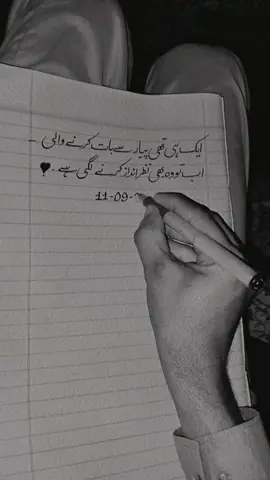 ایک ہی تھی پیار سے بات کرنے والی -
اب تو وہ بھی نظر انداز کرنے لگی ہے ..♥
11-09-